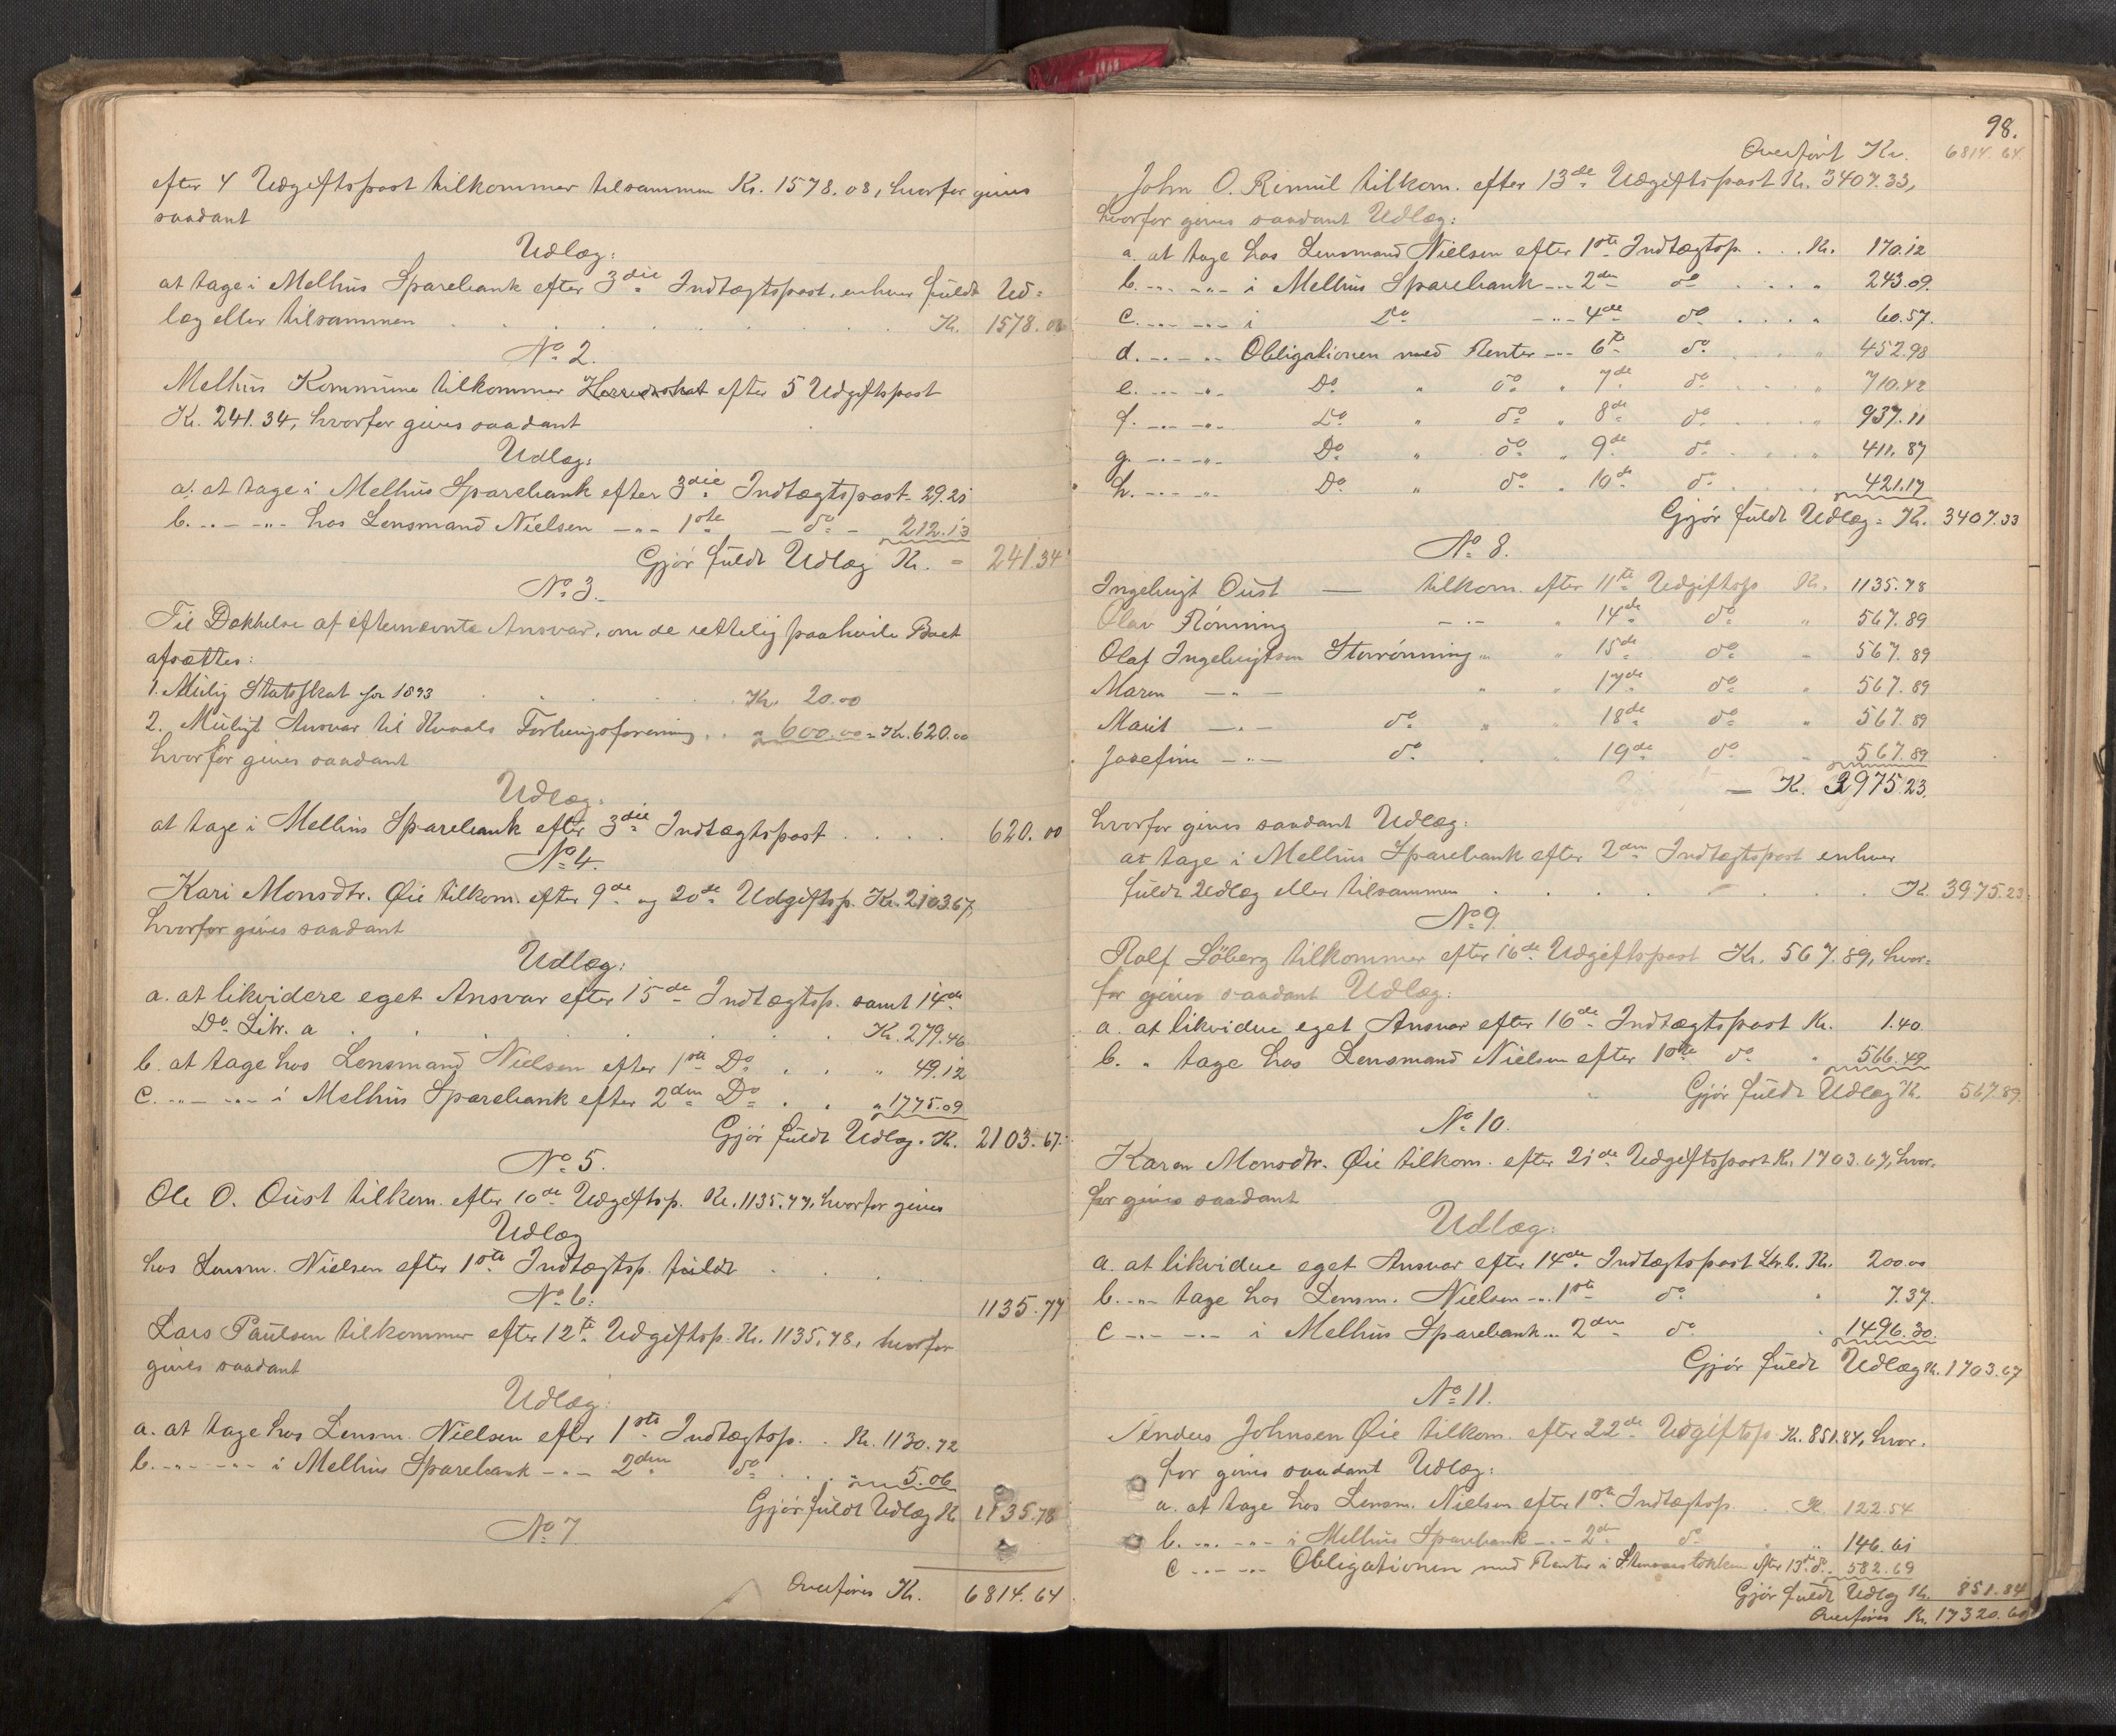 efter 4 Udgiftspost tilkommer tilsammen Kr. 1578.08, hvorfor gives
saadant
Udlæg:
at tage i Melhus Sparebank efter 3die Indtægtspost, enhver fuldt Ud=
læg eller tilsammen . . . . . . . . Kr. 1578.08
No 2.
Melhus Kommune tilkommer Herredsskat efter 5 Udgiftspost
Kr. 241.34, hvorfor gives saadant
Udlæg:
a. at tage i Melhus Sparebank efter 3die Indtægtspost - 29.21
b. „ - „ - hos Lensmand Nielsen - „ - 1ste - do - 212.13
Gjør fuldt Udlæg Kr. = 241.34
No 3.
Til Dækkelse af efternævnte Ansvar, om de rettelig paahvile Boet
afsættes:
1. Mulig Statsskat for 1893 . . . . Kr. 20.00
2. Muligt Ansvar til Hovals Forbrugsforening . . „ 600.00 = Kr. 620.00
hvorfor gives saadant
Udlæg:
at tage i Melhus Sparebank efter 3die Indtægtspost . . . . 620.00
No 4.
Kari Monsdtr. Øie tilkom. efter 9de og 20de Udgiftsp. Kr. 2103.67,
hvorfor gives saadant
Udlæg:
a. at likvidere eget Ansvar efter 15de Indtægtsp. samt 14de
Do Litr. a . . . . . . Kr. 279.46
b. at tage hos Lensmand Nielsen efter 1ste Do . . „ 49.12
c. „ - „ - i Melhus Sparebank efter 2den Do . . „ 1775.09
Gjør fuldt Udlæg. Kr. 2103.67
No 5.
Ole O. Oust tilkom. efter 10de Udgiftsp. Kr. 1135.77, hvorfor gives
Udlæg
hos Lensm. Nielsen efter 1ste Indtægtsp. fuldt . . .
1135.77
No 6:
Lars Paulsen tilkommer efter 12te Udgiftsp. Kr. 1135.78, hvorfor
gives saadant
Udlæg:
a. at tage hos Lensm. Nielsen efter 1ste Indtægtsp. . Kr. 1130.72
b. „ - „ - i Melhus Sparebank - „ - 2den do . . . „ 5.06
Gjør fuldt Udlæg Kr. 1135.78
No 7.
Overføres Kr. 6814.64
98.
Overført Kr. 6814.64
John O. Rimul tilkom. efter 13de Udgiftspost Kr. 3407.33,
hvorfor gives saadant Udlæg:
a. at tage hos Lensmand Nielsen efter 1ste Indtægtsp. . . Kr. 170.12
b. „ - „ - i Melhus Sparebank - „ - 2den do . . . „ 243.09.
c. „ - „ - i Do - „ - 4de do . . . „ 60.57.
d. „ - „ - Obligationen med Renter - „ - 6te do . . „ 452.98
e. „ - „ - Do „ do „ 7de do . . . „ 710.42
f. „ - „ - Do „ do „ 8de do . . . „ 937.11
g. „ - „ - Do „ do „ 9de do . . . „ 411.87
h. „ - „ - Do „ do „ 10de do . . . 421.17
Gjør fuldt Udlæg = Kr. 3407.33
No 8.
Ingebrigt Oust — tilkom. efter 11te Udgiftsp Kr. 1135.78
Olav Rønning - „ - „ 14de do „ 567.89
Olaf Ingebrigtsen Storrønning „ „ 15de do - 567.89
Maren - „ - „ „ 17de do „ 567.89
Marit - „ - do „ 18de do „ 567.89
Josefine - „ - do „ 19de do „ 567.89
— Kr. 3975.23.
hvorfor gives saadant Udlæg:
at tage i Melhus Sparebank efter 2den Indtægtspost enhver
fuldt Udlæg eller tilsammen . . . . . . Kr. 3975.23
No 9.
Rolf Løberg tilkommer efter 16de Udgiftspost Kr. 567.89, hvor=
for gives saadant Udlæg:
a. at likvidere eget Ansvar efter 16de Indtægtspost Kr. 1.40
b. „ tage hos Lensmand Nielsen efter 1ste do „ 566.49
Gjør fuldt Udlæg Kr. 567.89.
No 10.
Karen Monsdtr. Øie tilkom. efter 21de Udgiftspost Kr. 1703.67, hvor-
for gives saadant
Udlæg:
a. at likvidere eget Ansvar efter 14de Indtægtspost Ltr. b. Kr. 200.00
b. „ - tage hos Lensm. Nielsen - „ - 1ste do „ 7.37.
c - „ - „ - i Melhus Sparebank - „ - 2den do „ 1496.30.
Gjør fuldt Udlæg Kr. 1703.67
No 11.
Anders Johnsen Øie tilkom. efter 22de Udgiftsp. Kr. 851.84, hvor-
for gives saadant Udlæg:
a. at tage hos Lensm. Nielsen efter 1ste Indtægtsp. . Kr. 122.54
b. „ - „ - i Melhus Sparebank - „ - 2den do „ 146.61
c - „ - „ - Obligationen med Renter i efter 13de do „ 582.69
Gjør fuldt Udlæg Kr. 851.84
Overføres Kr. 17320.60